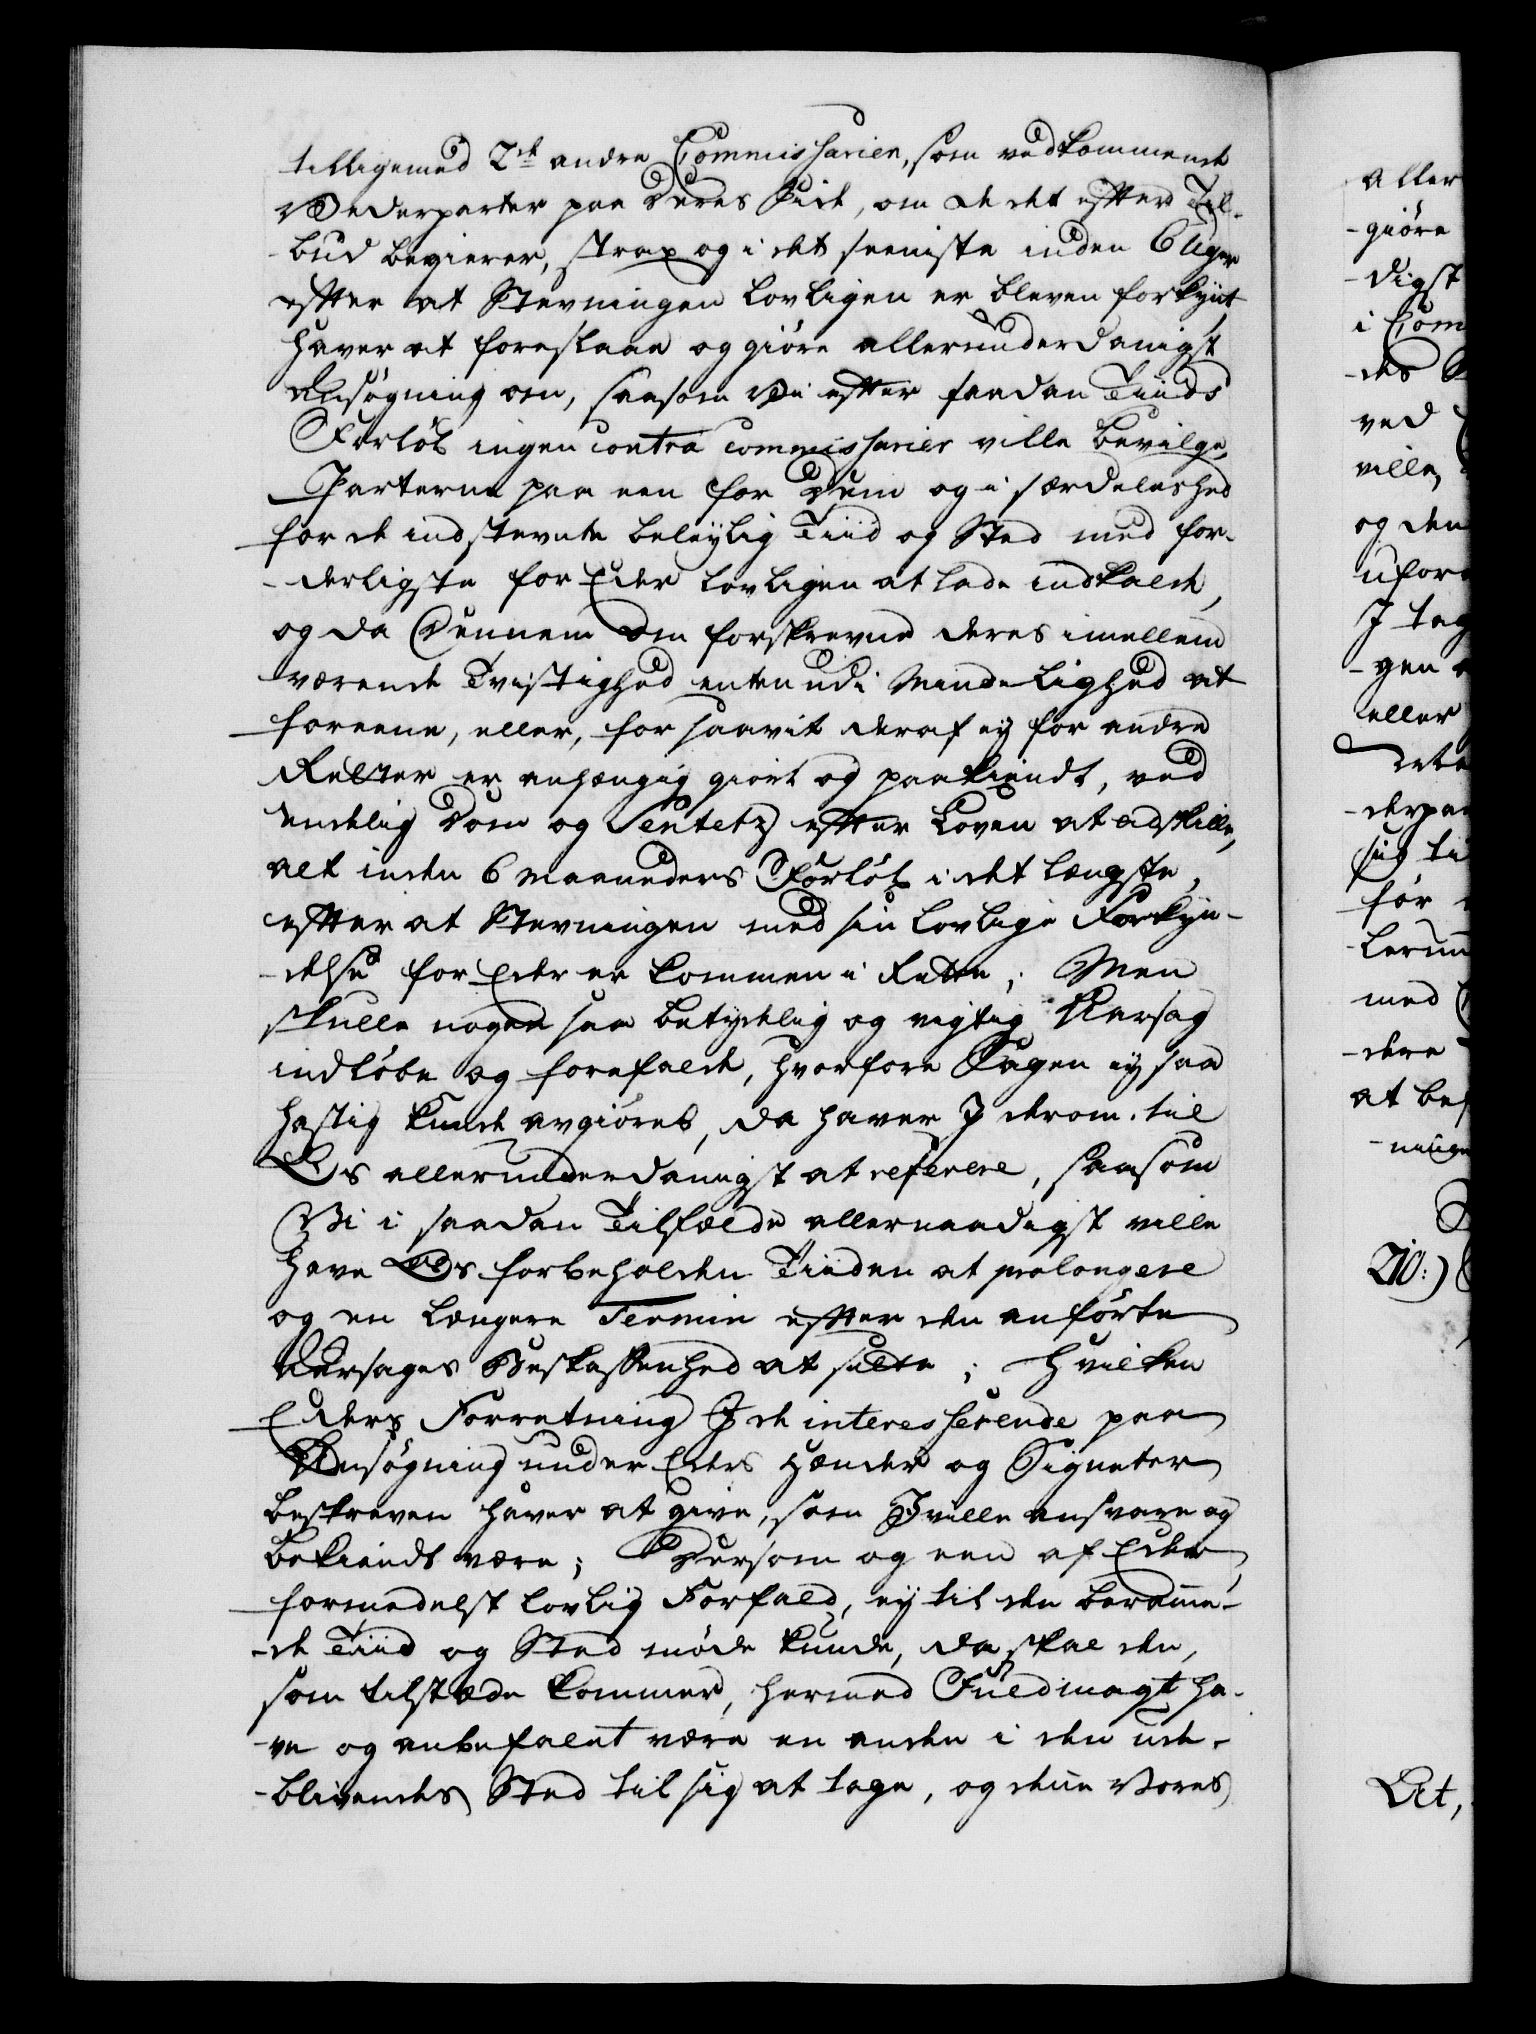 tilligemed 2de andre Commissarier, som vedkommende
Vederparter paa Deres Side, om de det efter Til-
-bud begierer, strax og i det seeniste inden 6 Uger
efter at Stevningen lovligen er bleven forkynt
haver at foreslaae og giöre allerunderdanigst
Ansøgning om, saasom Vi efter saadan Tiids
Forløb ingen contra commissarier ville bevilge,
Parterne paa een for Dem og i særdeleshed
for de indstevnte beleylig Tiid og Sted med for-
-derligste for Eder lovligen at lade indkalde,
og da Dennem den forskrevne deres imellem
værende Tvistighed enten udi Mindelighed at
foreene, eller, for saavit deraf ey for andre
Retter er anhængig giort og paakiendt, ved
endelig Dom og Sentetz efter Loven at adskille,
alt inden 6 Maaneders Forløb i det længste,
efter at Stevningen med sin lovlige Forkyn-
-delse for Eder er kommen i Rette; Men
skulle nogen saa betydelig og vigtig Aarsag
indløbe og forefalde, hvorfore Sagen ey saa
hastig kunde avgiøres, da haver I derom til
Os allerunderdanigst at referere, saasom
Vi i saadan Tilfælde allernaadigst ville
have Os forbeholden Tiiden at prolongere
og en længere Termin efter den anførte
Aarsages Beskaffenhed at sætte; Hvilken
Eders Forretning I de interesserende paa
Ansøgning under Eders Hænder og Signeter
beskreven haver at give, som I ville ansvare og
bekiendt være; Dersom og een af Eder
formedelst lovlig Forfald, ey til den beramme-
-de Tiid og Sted møde kunde, da skal den,
som tilstæde kommer, hermed Fuldmagt ha-
-ve og anbefalet være en anden i den ude-
-blivendes Sted til sig at tage, og denne Vores
aller
-giöre
-digst
i Com
-des
ved
ville,
og den
ufor
I tag
-gen
eller
-derpar
sig ti
før
med
-dere
at be
Lit,